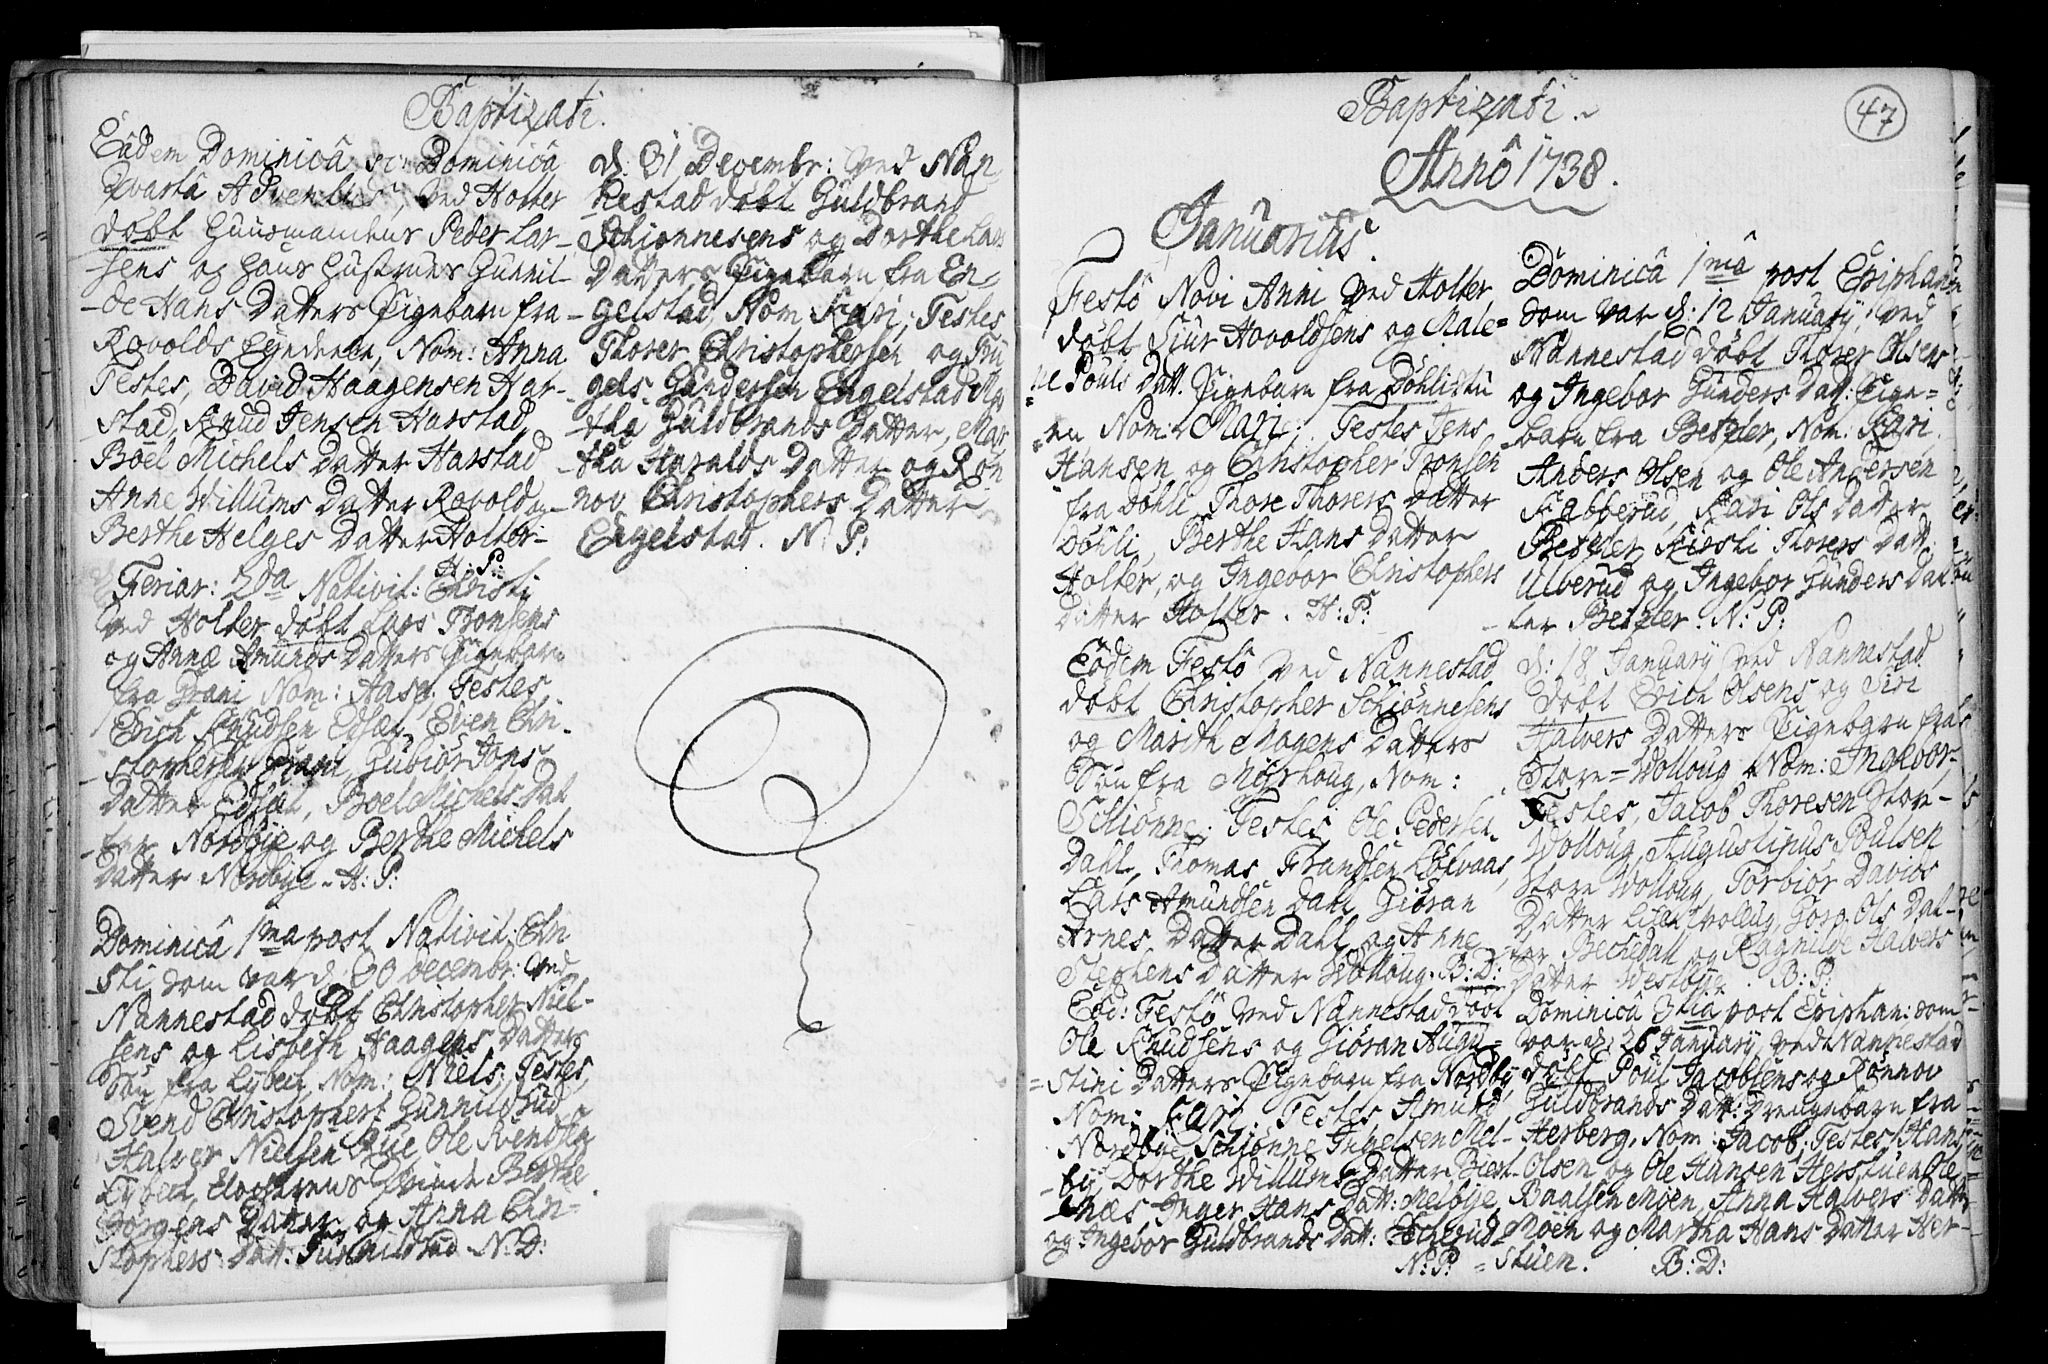 Baptizati.
Eâdem Dominicâ sc: Dominicâ
Qvartâ Adventus, ved Holter
döbt Huusmandens Peder Lar-
-sens og hans Hustrues Gunnil-
-de Hans Datters Pigebarn fra
Rovolds Eyendeele, Nom: Anna
Testes, David Haagensen Har-
stad, Knud Jensen Harstad,
Boel Michels Datter Harstad
Anne Willums Datter Rovold og
Berthe Helges Datter Holter-
H: P:
Feriar: 2da Nativit: Christi
ved Holter döbt Lars Tronsens
og Annæ Amunds Datters Pigebarn
fra Grani Nom: Aase. Testes,
Erich Knudsen Edsæt, Even Chri-
-stophersen Grani, Gubiör Jons
Datter Edsæt, Boel Michels Dat
-ter Nordbye og Berthe Michels
Datter Nordbye - H: P:
Dominicâ 1ma post Nativit: Chri
-sti, som var d: 30 Decembr: ved
Nannestad döbt Christopher Niel-
sens og Lisbeth Haagens Datters
Sön fra Lybech, Nom: Niels, Testes,
Svend Christophers: Gunnilsrud
Halvor Nielsen Bye Ole Svendsen
Lybech, Klocherens Qvinde Berthe
Börgens Datter og Anna Chri-
stophers Datt: N: D:
d: 31 Decembr: ved Nan-
nestad döbt Guldbrand
Schionnesens og Dorthe Lars
Datters Pigebarn fra En-
- gelstad, Nom: Kari; Testes
Thorer Christophersen og En-
- gels. Gundersen Engelstad Mar
-tha Guldbrands Datter, Mar
-tha Haralds Datter og Rön
- nov Christophers Datter
Engelstad. N: P:
47
Baptizati.
Annô 1738.
Januarius.
Festô Novi Anni ved Holter
döbt Siur Hovoldsens og Male-
ne Pouls Datt. Pigebarn fra Döhlistu
-en Nom: Marie. Testes Jens
Hansen og Christopher Tronsen
fra Döhli, Thore Thorers Datter
Döhli, Berthe Hans Datter
Holter, og Ingebor Christophers
Datter Holter. H: P:
Eodem Festô ved Nannestad
döbt Christopher Schiönnesens
og Marithe Mogens Datters
Sön fra Mörhoug, Nom:
Schiönne; Testes Ole Pedersen
Dahl, Thomas Frandsen Löchaas,
Lars Amundsen Dahl, Giöran
Arnes Datter Dahl og Anne
Stephens Datter Wolloug. B: D:
Eod: Festô ved Nannestad döbt
Ole Knudsens og Giöran Augu-
-stini Datters Pigebarn fra Nordby
Nom: Kari. Testes Amund
Nordbye, Schiönne Mel-
-by, Dorthe Willums Datter Biert-
-næs Inger Hans Datt: Melbye,
og Ingebor Guldbrands Datt: Eschrud
N: P:
Dominicâ 1mâ post Epiphan:
som var d: 12 January, ved
Nannestad döbt Thorer Olsens
og Ingebor Gunders Datt: Pige-
-barn fra Betzler, Nom: Kari.
Anders Olsen og Ole Andersen
Fabberud, Kari Ols Datter
Betzler Kirsti Thorers Datt:
Ulverud og Ingebor Gunders Dat
-ter Betzler. N: P:
d: 18 January ved Nannestad
döbt Erich Olsens og Siri
Halvers Datters Pigebarn fra
Store-Wolloug, Nom: Ingebor,
Testes, Jacob Thoresen Stor-
Wolloug, Augustinus Poulsen
Store Wolloug, Torbiör Davids
Datter Wolloug, Goro Ols Dat-
-ter Bechedall og Ragnilde Halvers
Datter Westbye. B: P:
Dominicâ 3tia post Epiphan: som
var d: 26 January, ved Nannestad
döbt Poul Jacobsens og Rönnov
Guldbrands Datt: Drengebarn fra
Herberg, Nom: Jacob, Testes, Hans
Olsen og Ole Hansen Herstuen Ole
Baalsen Moen, Anna Halvers Datt
Moen og Martha Hans Datter Her-
-stuen. B: D: